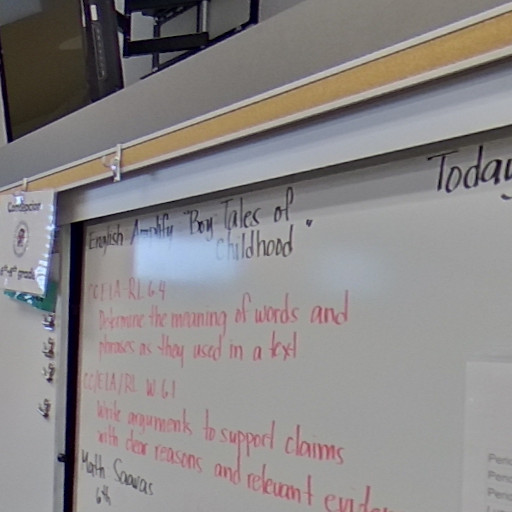 Today
English Amplify "Boy Tales of
Childhood"
CCELA-RL 6.4
Determine the meaning of words and
phrases as they used in a text
CC/ELA/RL W 6.1
Write arguments to support claims
with clear reasons and relevant
Math Saavas
6th